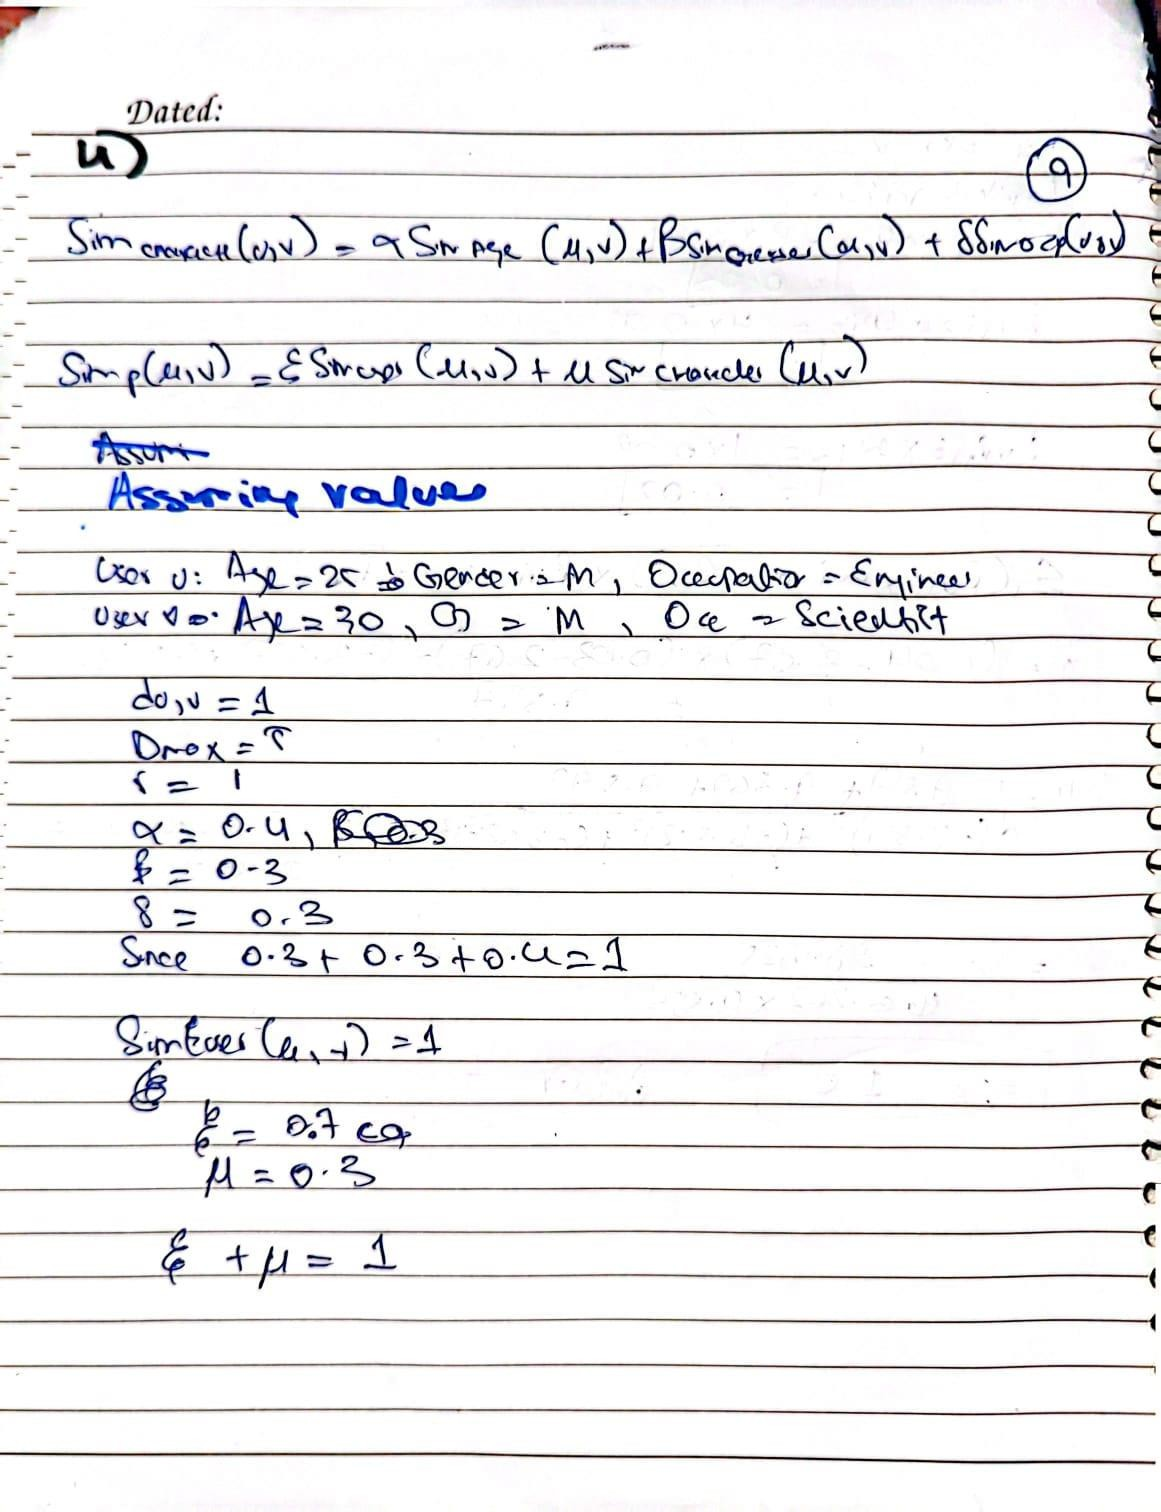 Dated:
4)
9
Sim character(u,v) = α Sim Age (u,v) + β Sim Gender (u,v) + δ Sim ocp(u,v)
Simp(u,v) = ξ Sim (u,v) + μ Sim character (u,v)
Assum
Assuming values
User u: Age = 25 Gender = M, Occupatio = Engineer
User v: Age = 30, G = M, Occ = Scientist
du,v = 1
Dmax = 5
r = 1
α = 0.4,
β = 0.3
δ = 0.3
Since 0.3 + 0.3 + 0.4 = 1
Sim (u,v) = 1
ξ = 0.7
μ = 0.3
ξ + μ = 1